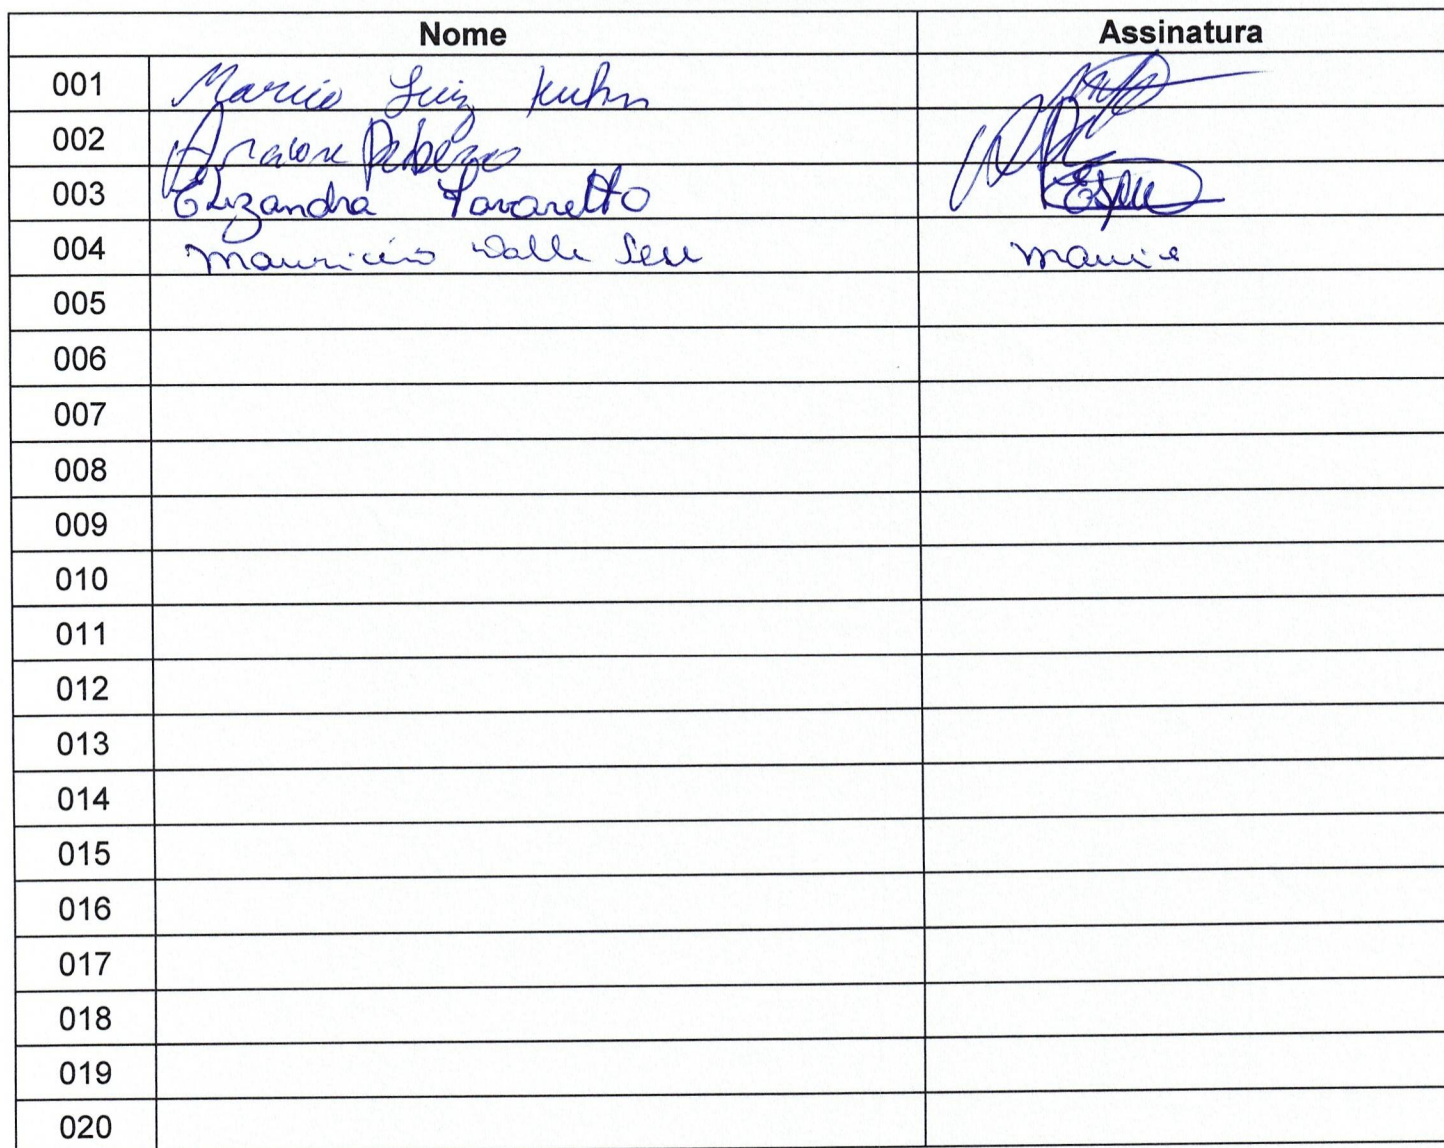 Nome Assinatura
001 Marcio Luiz Kuhn
002
003 Elizandra Pavaretto
004 Mauricio Dalle
005
006
007
008
009
010
011
012
013
014
015
016
017
018
019
020